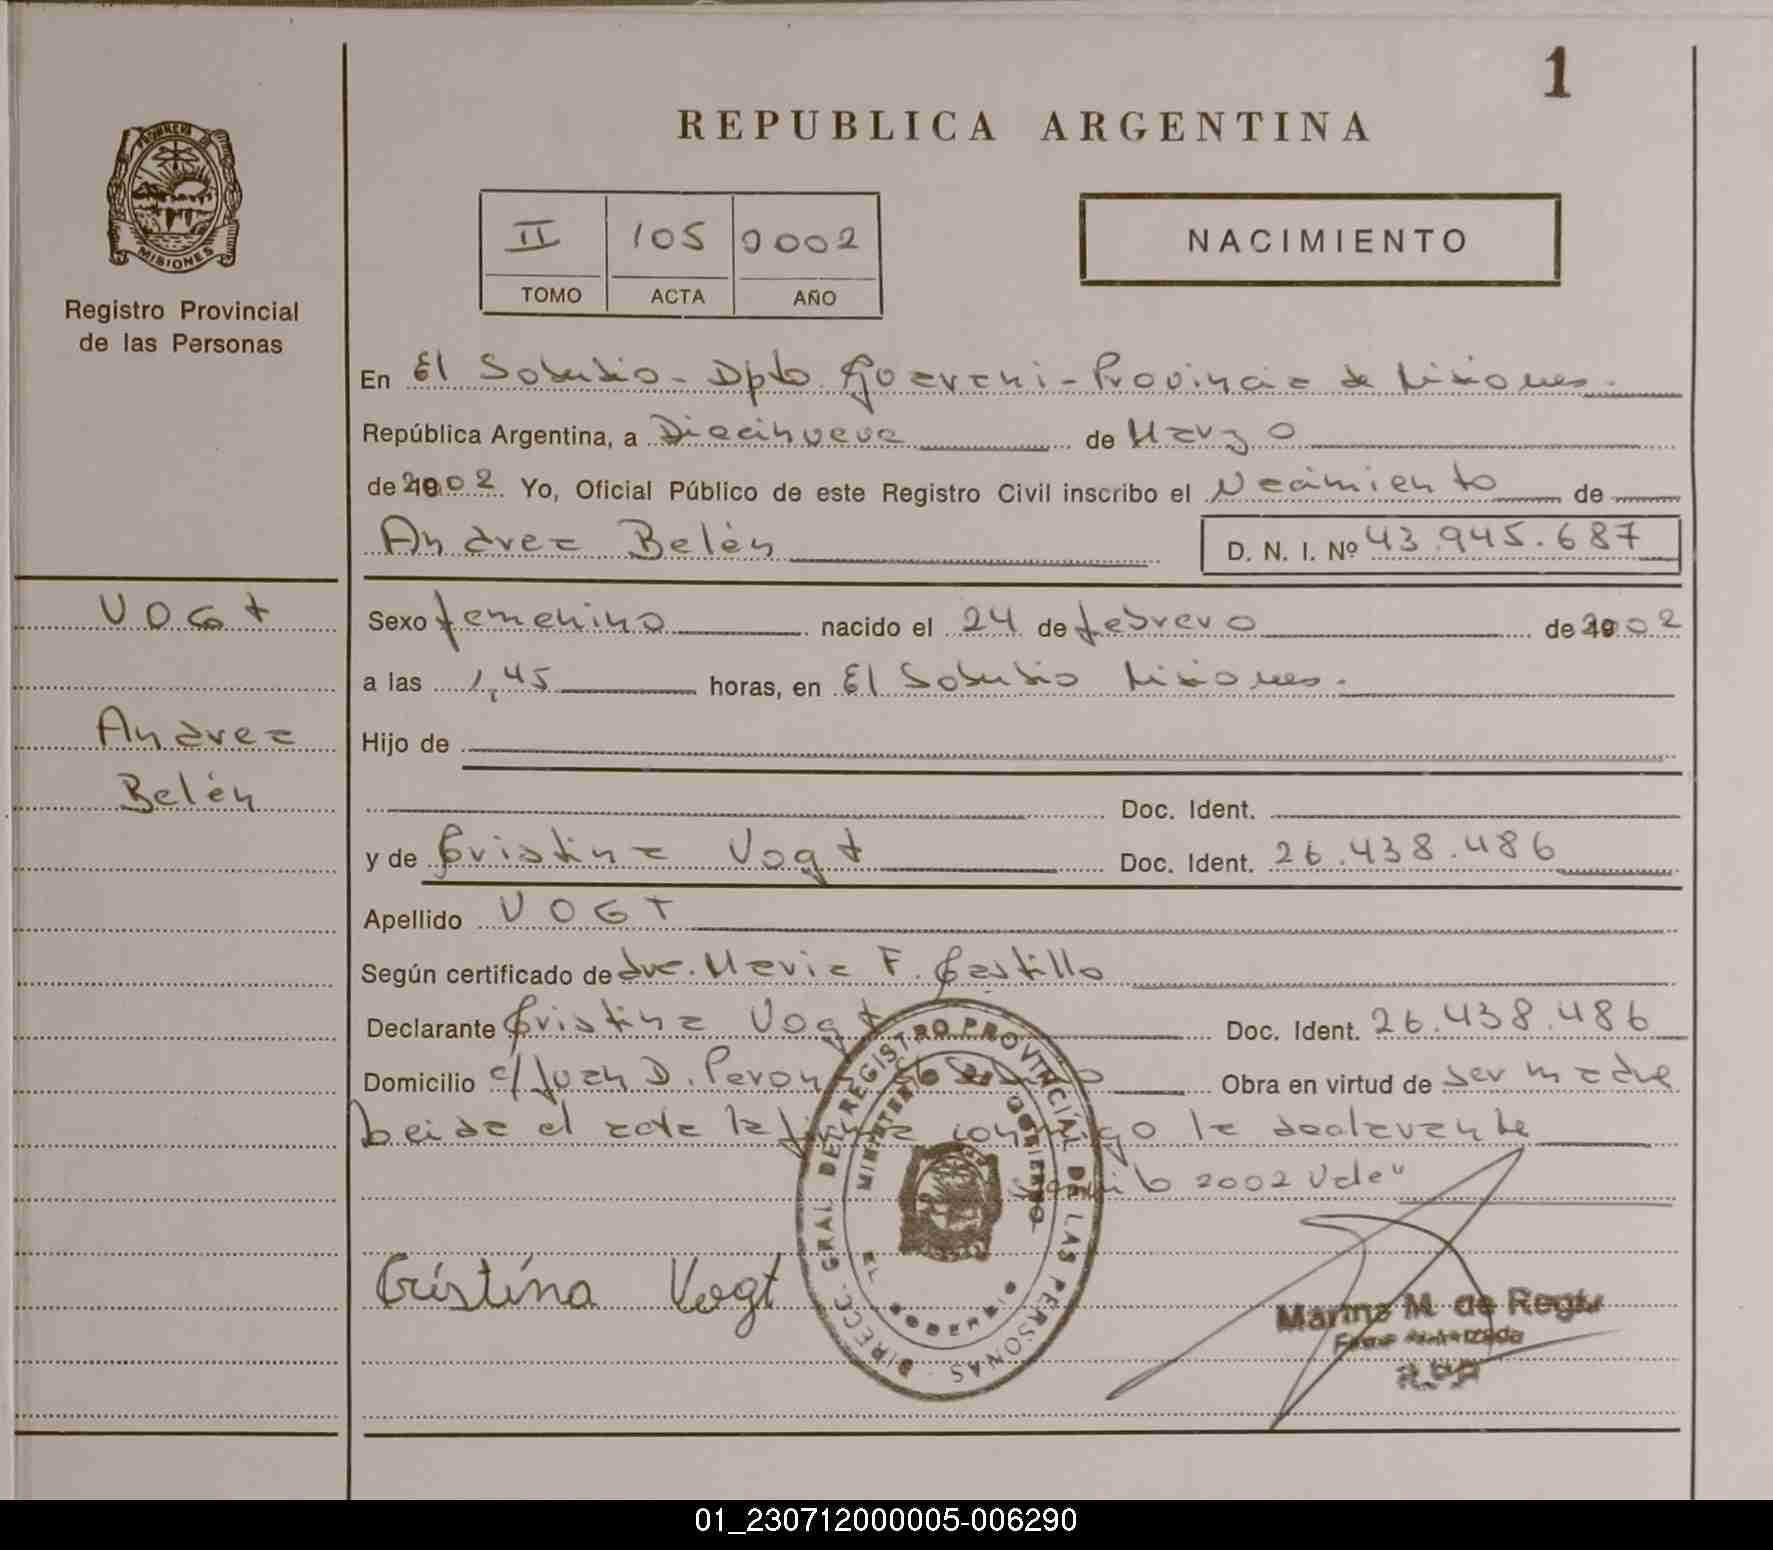 1
REPUBLICA ARGENTINA
MISIONES
Registro Provincial
de las Personas
II 105 2002
TOMO ACTA AÑO
NACIMIENTO
En El Soberbio - Dpto Guarani - Provincia de Misiones.
República Argentina, a Diecinueve de Marzo
de 2002 Yo, Oficial Público de este Registro Civil inscribo el Nacimiento de
Andrea Belén D. N. I. Nº 43.945.687
VOGt
Andrea
Belén
Sexo femenino nacido el 24 de febrero de 2002
a las 1,45 horas, en El Soberbio Misiones.
Hijo de
Doc. Ident.
y de Cristina Vogt Doc. Ident. 26.438.486
Apellido VOGT
Según certificado de dra. Maria F. Castillo
Declarante Cristina Vogt Doc. Ident. 26.438.486
Domicilio c/ Juan D. Peron Obra en virtud de ser madre
Leida el acta la firma conmigo la declarante
2002 Vale"
Cristina Vogt
DIRECC. GRAL. DEL REGISTRO PROVINCIAL DE LAS PERSONAS
MINISTERIO GOBIERNO
EL SOBERBIO
Marina M. de
01_230712000005-006290